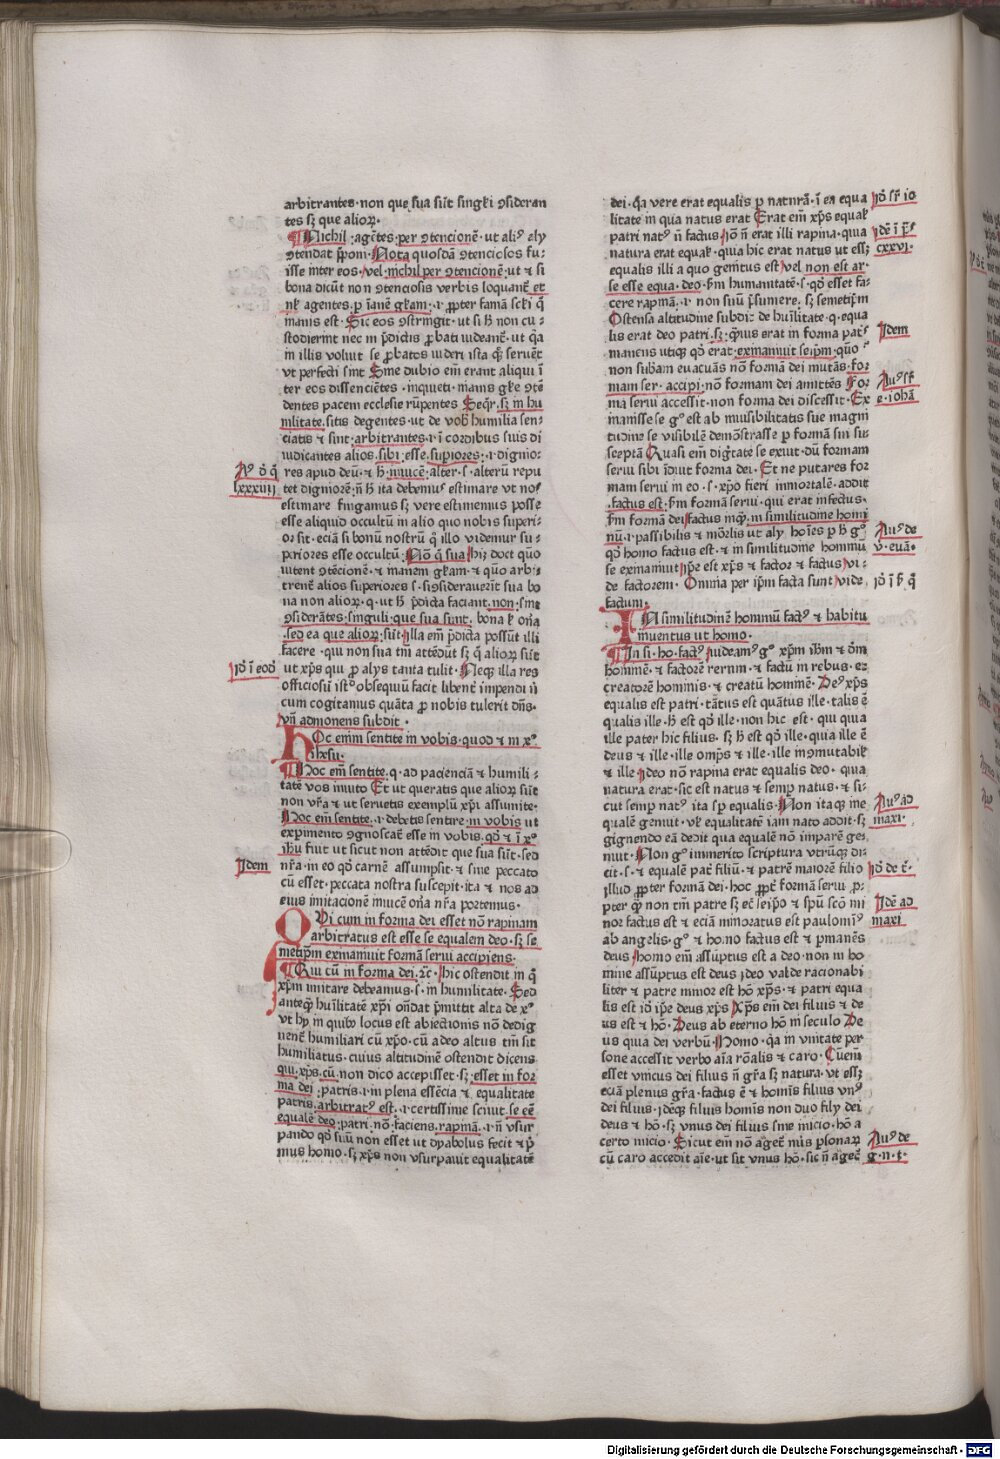 arbitrantes·non que sua sūt singłi ꝯsideran
tes sꝫ que alioꝝ·
Nichil·agētes·per ꝯtencionē·ut aliꝰ aly
ꝯtendat ꝓom·Nota quosdā ꝯtenciosos fu⸗
isse inter eos·vel·nichil per ꝯtencionē·ut ⁊ si
bona dicūt non ꝯtenciosis verbis loquant᷑ et
agentes·ꝑ īanē
manis est·Sic eos ꝯstringit·ut si
in illis voluit se ꝓbatos
vt perfecti sint Sine dubio em̄ erant aliqui ī
ter eos dissencientes·inquieti·
dentes pacem ecclesie rūpentes sꝫ in hu
militate·sitis degentes·ut de humilia sen⸗
ciatis ⁊ sint·arbitrantes·ı ī cordibus suis di
iudicantes alios·sibi·esse·superiores·
res apud deū·⁊ ħ·inuicē·alter·s·alterū repu
tet digniorē·n̄ ħ ita debemꝰ estimare vt noſ
estimare fingamus sꝫ vere estimemus posse
esse aliquid occultū in alio quo nobis superi⸗
or sit·eciā si bonū nostrū q̄ illo videmur su⸗
ꝑiores esse occultū·Nō q̄ sua
uitent ꝯtecionē·⁊ inanem ⁊ quō arbi⸗
trent᷑ alios superiores s·si sua bo
na non alioꝝ·q·ut ħ p̄dicta faciant·non·sine
ꝯsiderātes·singuli·que sua sunt·bona
sed ea que alioꝝ·sūt·illa em̄ p̄dicta possūt illi
facere·qui non sua tm̄ attēdūt sꝫ q̄ alioꝝ sūt
ut xp̄s qui ꝓ alys tanta tulit·Neqꝫ illa res
officiosū istꝰ obsequiū facit libent᷑ impendi n̄
cum cogitamus quāta ꝓ nobis tulerit dn̄s·
vn̄ admonens subdit·
Hoc enim sentite in vobis·quod ⁊ in xꝰ
ihesu·
Hoc em̄ sentite·q·ad pacienciā ⁊ humili⸗
tatē vos inuito Et ut queratis que alioꝝ sūt
non vr̄a ⁊ ut seruetis exemplū xp̄i assumite·
Hoc em̄ sentite·ı debetis sentire·in vobis ut
expimento ꝯgnoscat᷑ esse in vobis·qd̄ ⁊ ī xꝰ
ihū fuit ut sicut non attēdit que sua sūt·sed
nr̄a·in eo qd̄ carnē assumpsit·⁊ sine peccato
cū esset·peccata nostra suscepit·ita ⁊ nos ad
eius imitacionē inuicē on̄a nr̄a portemus·
Qui cum in forma dei esset nō rapinam
arbitratus est esse se equalem deo·sꝫ se
metipm̄ exinaniuit formā serui accipiens·
Qui cū in forma dei·⁊c̄·hic ostendit in q̄
xp̄m imitare debeamus·s·in humilitate·Sed
anteqꝫ hūilitatē xp̄i on̄dat p̄mittit alta de xꝰ
vt hy in quibꝰ locus est abiectionis nō dedig
nent᷑ humiliari cū xp̄o·cū adeo altus tm̄ sit
humiliatus·cuius altitudinē ostendit dicens
qui·xp̄s·cū·non dico accepisset·sꝫ·esset in for
ma dei·patris·ı in plena essēcia ⁊ equalitate
patris·arbitratꝰ est·ı certissime sciuit·se eē
equalē deo·patri·nō·faciens·rapinā·ı n̄ vsur
pando qd̄ suū non esset ut dyabolus fecit ⁊ p̄
mus homo·sꝫ xp̄s non vsurpauit equalitatē
Aꝰ
lxxxiii
Idem
dei·q̄a vere erat equalis ꝑ naturā·ī ea equa
litate in qua natus erat Erat em̄ xp̄s equał
patri natꝰ n̄ factus·ıō n̄ erat illi rapina·quia
natura erat equał·quia hic erat natus ut essꝫ
equalis illi a quo genitus est vel non est ar⸗
se esse equa·deo·ẜm humanitatē·s·qd̄ esset fa⸗
cere rapinā·ı non suū p̄sumere·sꝫ semetip̄m
Ostensa altitudine subdit de hūilitate·q·equa
lis erat deo patri·sꝫ·q̄uis erat in forma pat᷑s
manens utiqꝫ qd̄ erat·exinaniuit seip̄m·quōꝰ
non subam euacuās nō formā dei mutās·for
mam ser·accipi·nō formam dei amittēs For
ma serui accessit·non forma dei discessit·Ex
inanisse se gͦ est ab inuisibilitatis sue magni
tudine se visibilē demōstrasse ꝑ formā sui su
sceptā Quasi em̄ dig̅tate se exuit·dū formam
serui sibi īduit forma dei·Et ne putares for
mam serui in eo·s·xp̄o fieri inmortalē·addit
·factus est·ẜm formā serui·qui erat infectus·
ẜm formā dei factus inqꝫ·in similitudinē homi
nū·ı passibilis ⁊ mōrlis ut aly hoīes ꝑ ħ gͦ
qd̄ homo factus est·⁊ in similitudinē hominū
se exinaniuit ip̄e est xp̄s ⁊ factor ⁊ factus vi⸗
de factorem·Omnia per ip̄m facta sunt vide
factum·
In similitudinē hominū factꝰ ⁊ habitu
inuentus ut homo·
In si·ho·factꝰ·uideamꝰ gͦ xp̄m ihm̄ ⁊ dm̄
hominē·⁊ factorē rerum·⁊ factū in rebus·⁊
creatorē hominis·⁊ creatū hominē·Deꝰ xp̄s
equalis est patri·tātus est quātus ille·talis ē
qualis ille·ħ est qd̄ ille·non hic est·qui quia
ille pater hic filius·sꝫ ħ est qd̄ ille·quia ille ē
deus ⁊ ille·ille omp̄s ⁊ ille·ille inꝯmutabił
⁊ ille·ideo nō rapina erat equalis deo·quia
natura erat·sic est natus ⁊ semp natus·⁊ si⸗
cut semp natꝰ ita sp equalis·Non itaqꝫ ine
qualē genuit·vł equalitatē iam nato addit·sꝫ
gignendo eā dedit qua equalē nō imparē ge⸗
nuit·Non gͦ immerito scriptura vtrūqꝫ di⸗
cit·s·⁊ equalē pat᷑ filiū·⁊ patrē maiorē filio
illud ꝓpter formā dei·hoc ꝓpt᷑ formā serui ꝓ⸗
pter q̄ non tm̄ patre sꝫ ec̄ seip̄o ⁊ spū sc̄o mi
nor factus est ⁊ eciā minoratus est paulominꝰ
ab angelis·gͦ ⁊ homo factus est ⁊ ꝑmanēs
deus homo em̄ assūptus est a deo·non in ho
mine assūptus est deus ideo valde racionabi
liter ⁊ patre minor est hō xp̄s·⁊ patri equa
lis est id̄ ip̄e deus xp̄s Xp̄s em̄ dei filius ⁊ de
us est ⁊ hō·Deus ab eterno hō in seculo De
us quia dei verbū·Homo·q̄a in vnitatē per
sone accessit verbo aīa rōalis ⁊ caro·Cūem̄
esset vnicus dei filius n̄ gr̄a sꝫ natura·vt essꝫ
eciā plenus gr̄a·factus ē ⁊ homīs filius vnꝰ
dei filius·ideqꝫ filius homīs non duo fily dei
deus ⁊ hō·sꝫ vnus dei filius sine inicio·hō a
certo inicio·Sicut em̄ nō aget᷑ mīs ꝑsonaꝝ
cū caro accedit aīe·ut sit vnus hō·sic n̄ aget᷑
cxxvi·
Idem
Auꝰ
e·iohā
Auꝰ de
v·euā·
Auꝰ ad
maxi·
Idē ad
maxi
Auꝰ de
g·n·t·
Digitalisierung gefördert durch die Deutsche Forschungsgemeinschaft - DFG